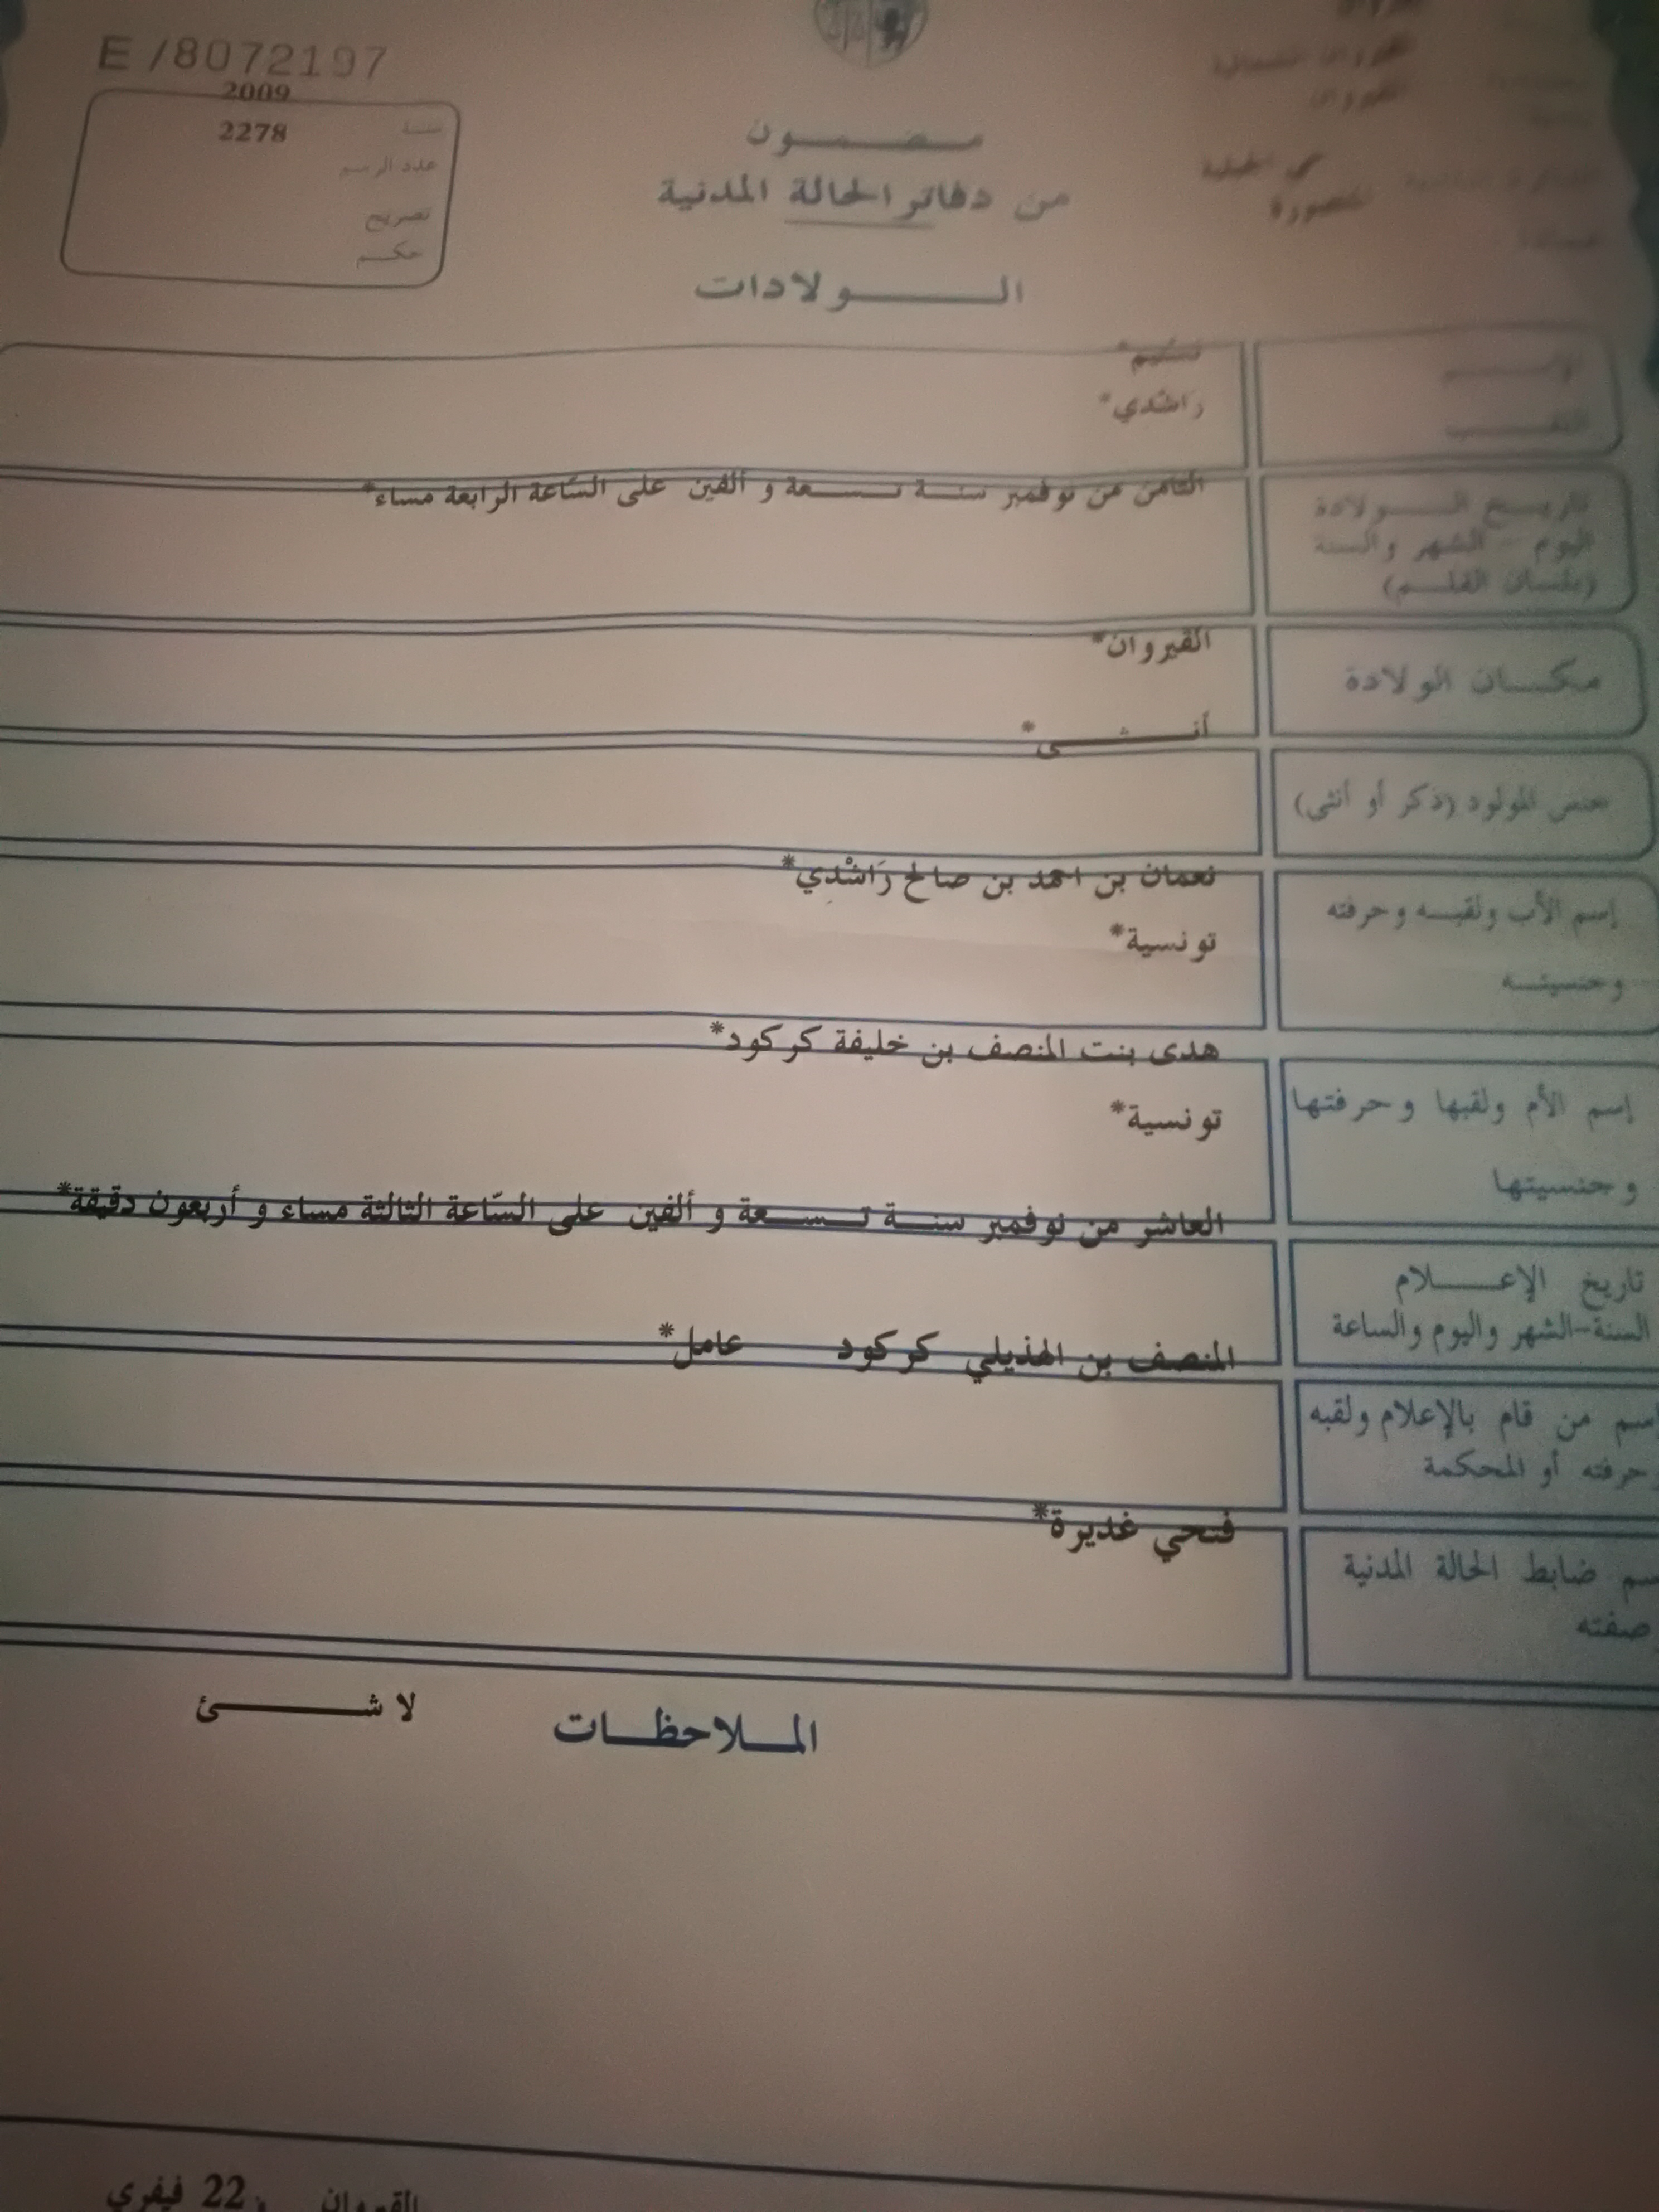 E /8072197
2009
سنة
2278
عدد الرسم
تصريح
حكم
القيروان
المنصورة
مضمون
من دفاتر الحالة المدنية
الولادات
اللقب
راشدي*
تاريخ الولادة
اليوم - الشهر والسنة
(بلسان القلم)
الثامن من نوفمبر سنة تسعة و ألفين على السّاعة الرابعة مساء*
مكان الولادة
القيروان*
أنثى*
جنس المولود (ذكر أو أنثى)
نعمان بن احمد بن صالح رَاشْدِي*
إسم الأب ولقبه وحرفته
تونسية*
وجنسيته
هدى بنت المنصف بن خليفة كركود*
إسم الأم ولقبها وحرفتها
تونسية*
وجنسيتها
العاشر من نوفمبر سنة تسعة و ألفين على السّاعة الثالثة مساء و أربعون دقيقة*
تاريخ الإعلام
السنة-الشهر واليوم والساعة
المنصف بن الهذيلي كركود عامل*
إسم من قام بالإعلام ولقبه
وحرفته أو المحكمة
فتحي غديرة*
إسم ضابط الحالة المدنية
وصفته
الملاحظات لا شئ
القيروان 22 فيفري